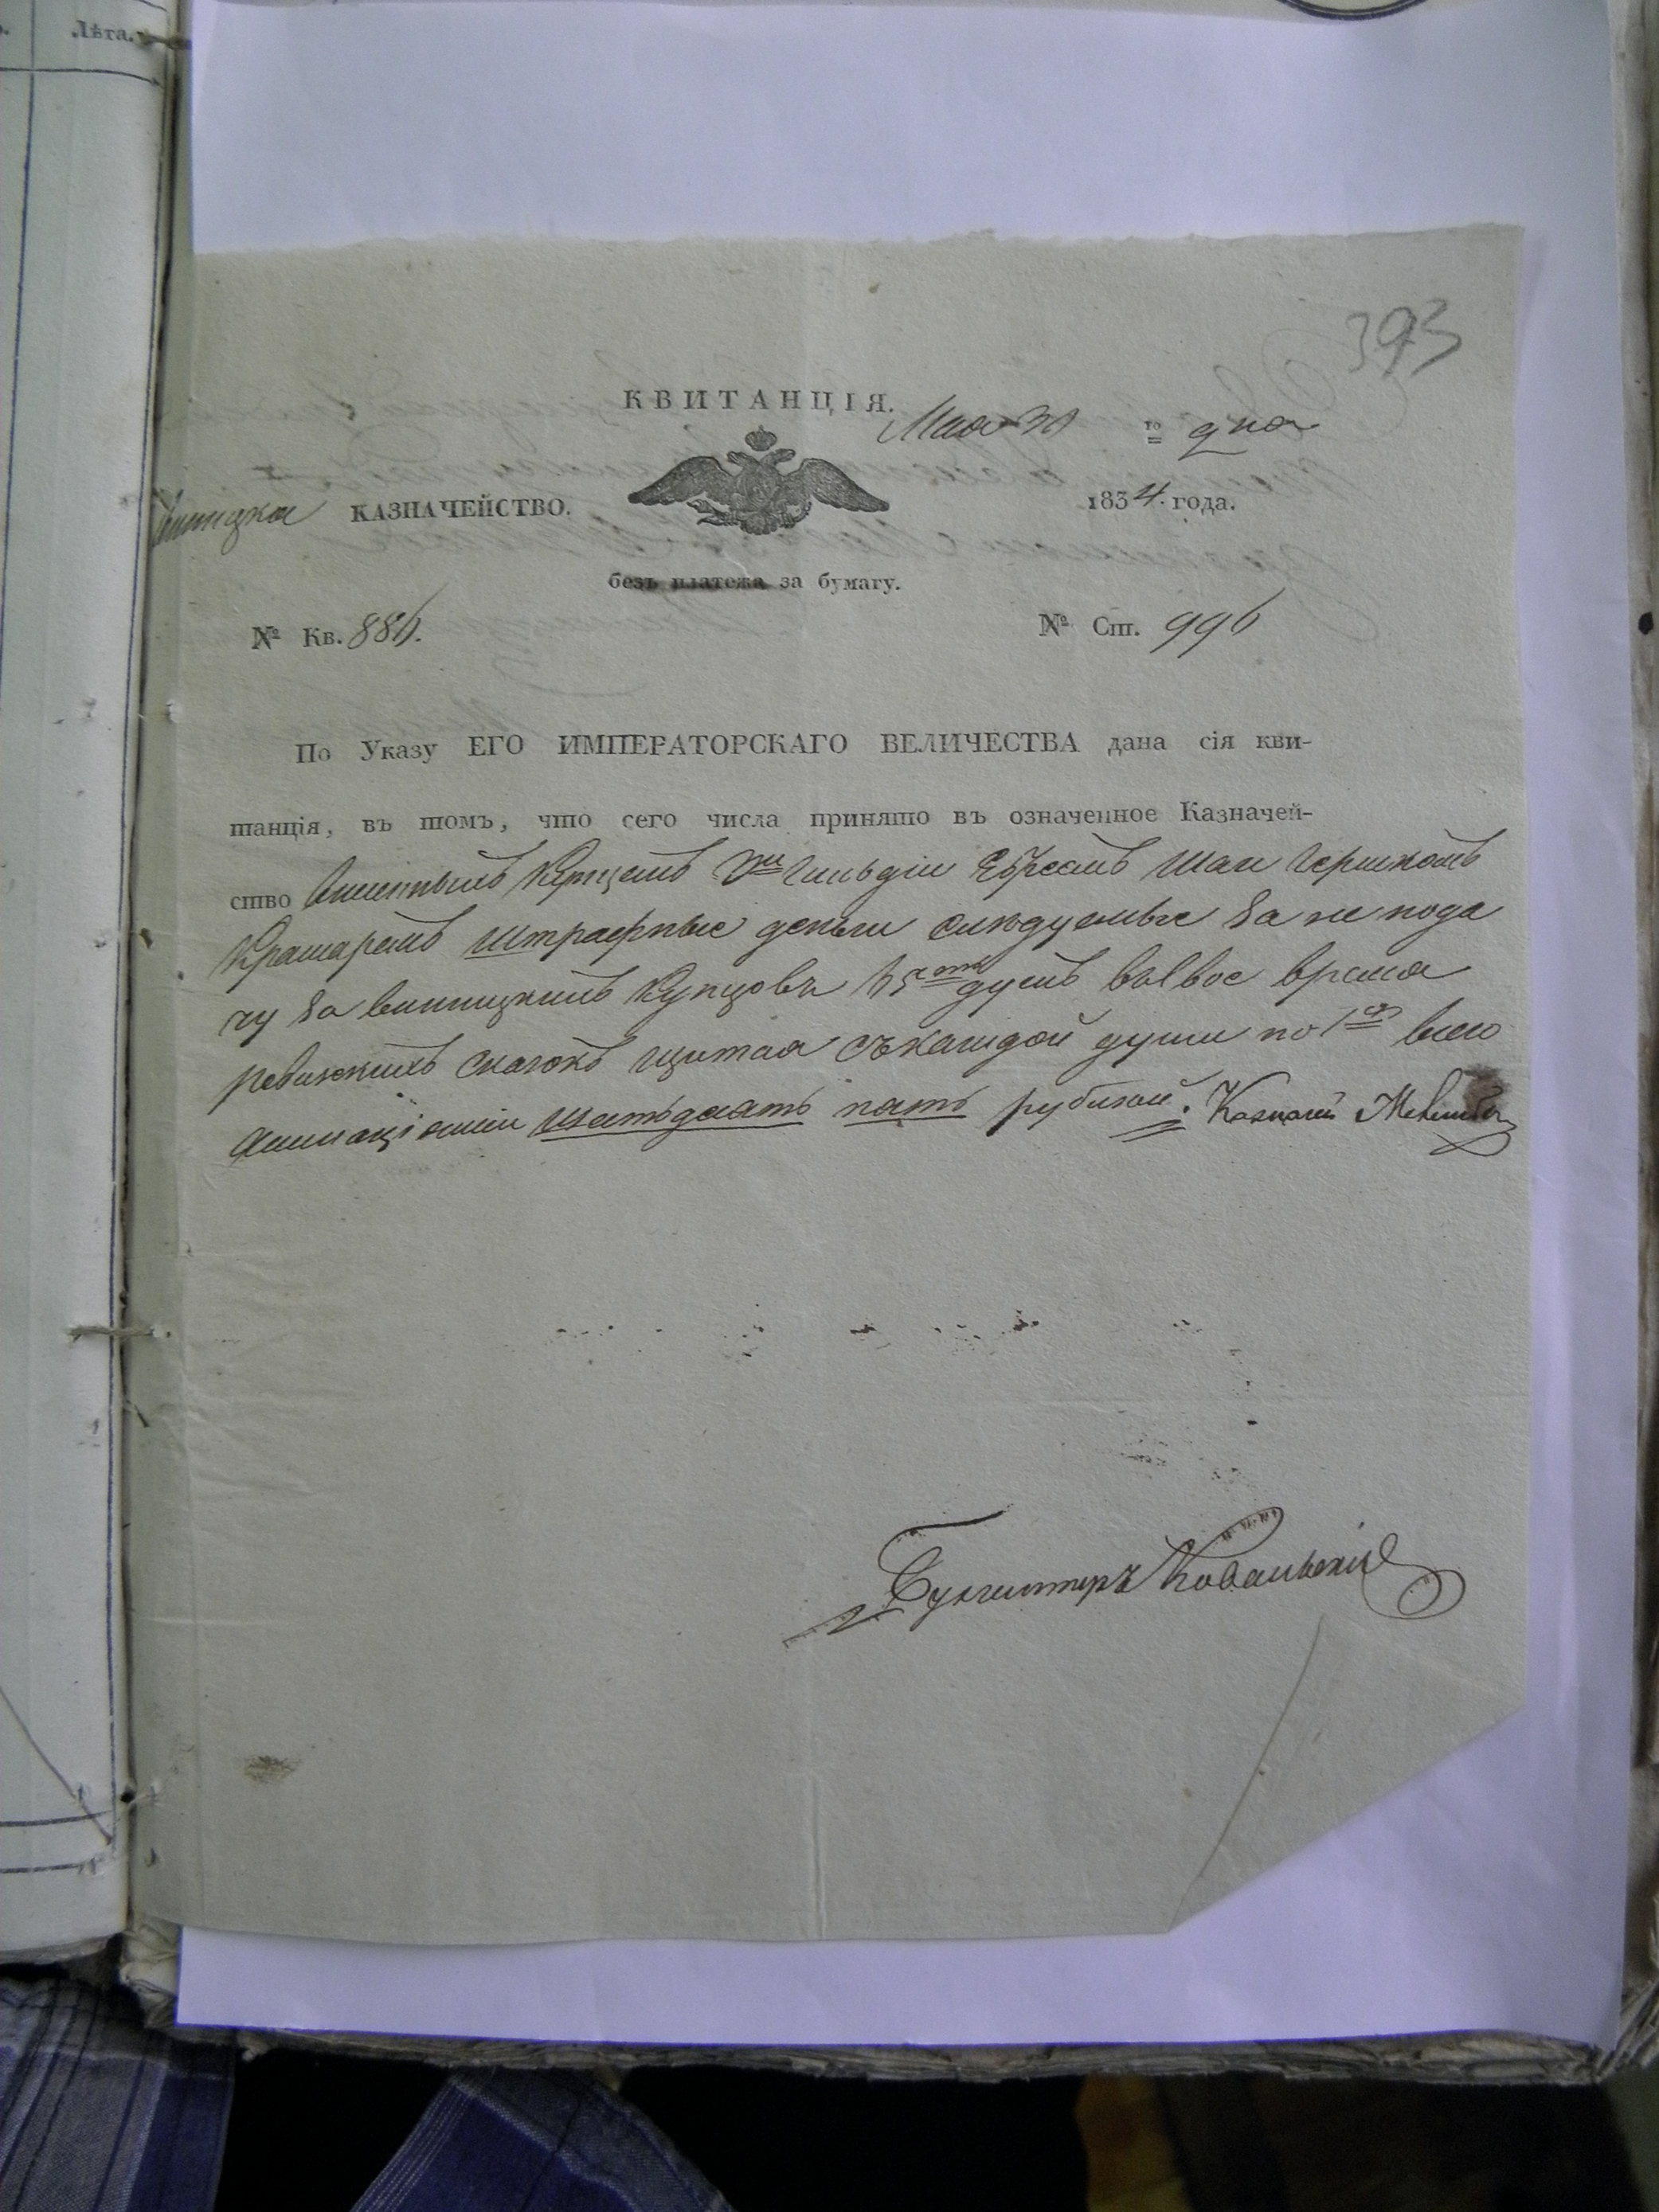 Лѣта.
393
КВИТАНЦІЯ.
Мая 30 го дня
КАЗНАЧЕЙСТВО.
1834. года.
безъ платежа за бумагу.
№ Кв. 886.
№ Ст. 996
По Указу ЕГО ИМПЕРАТОРСКАГО ВЕЛИЧЕСТВА дана сія кви-
танція, въ томъ, что сего числа принято въ означенное Казначей-
ство Купцемъ гильдіи Евреемъ
штрафные деньги следуемые за не пода
чу за винницкихъ Купцовъ 65 душъ время
ревижкихъ сказокъ щитая съ каждой души по 1 всего
ассигнаціями шестьдесятъ пять рублей.
Бухгалтеръ Ковальскій